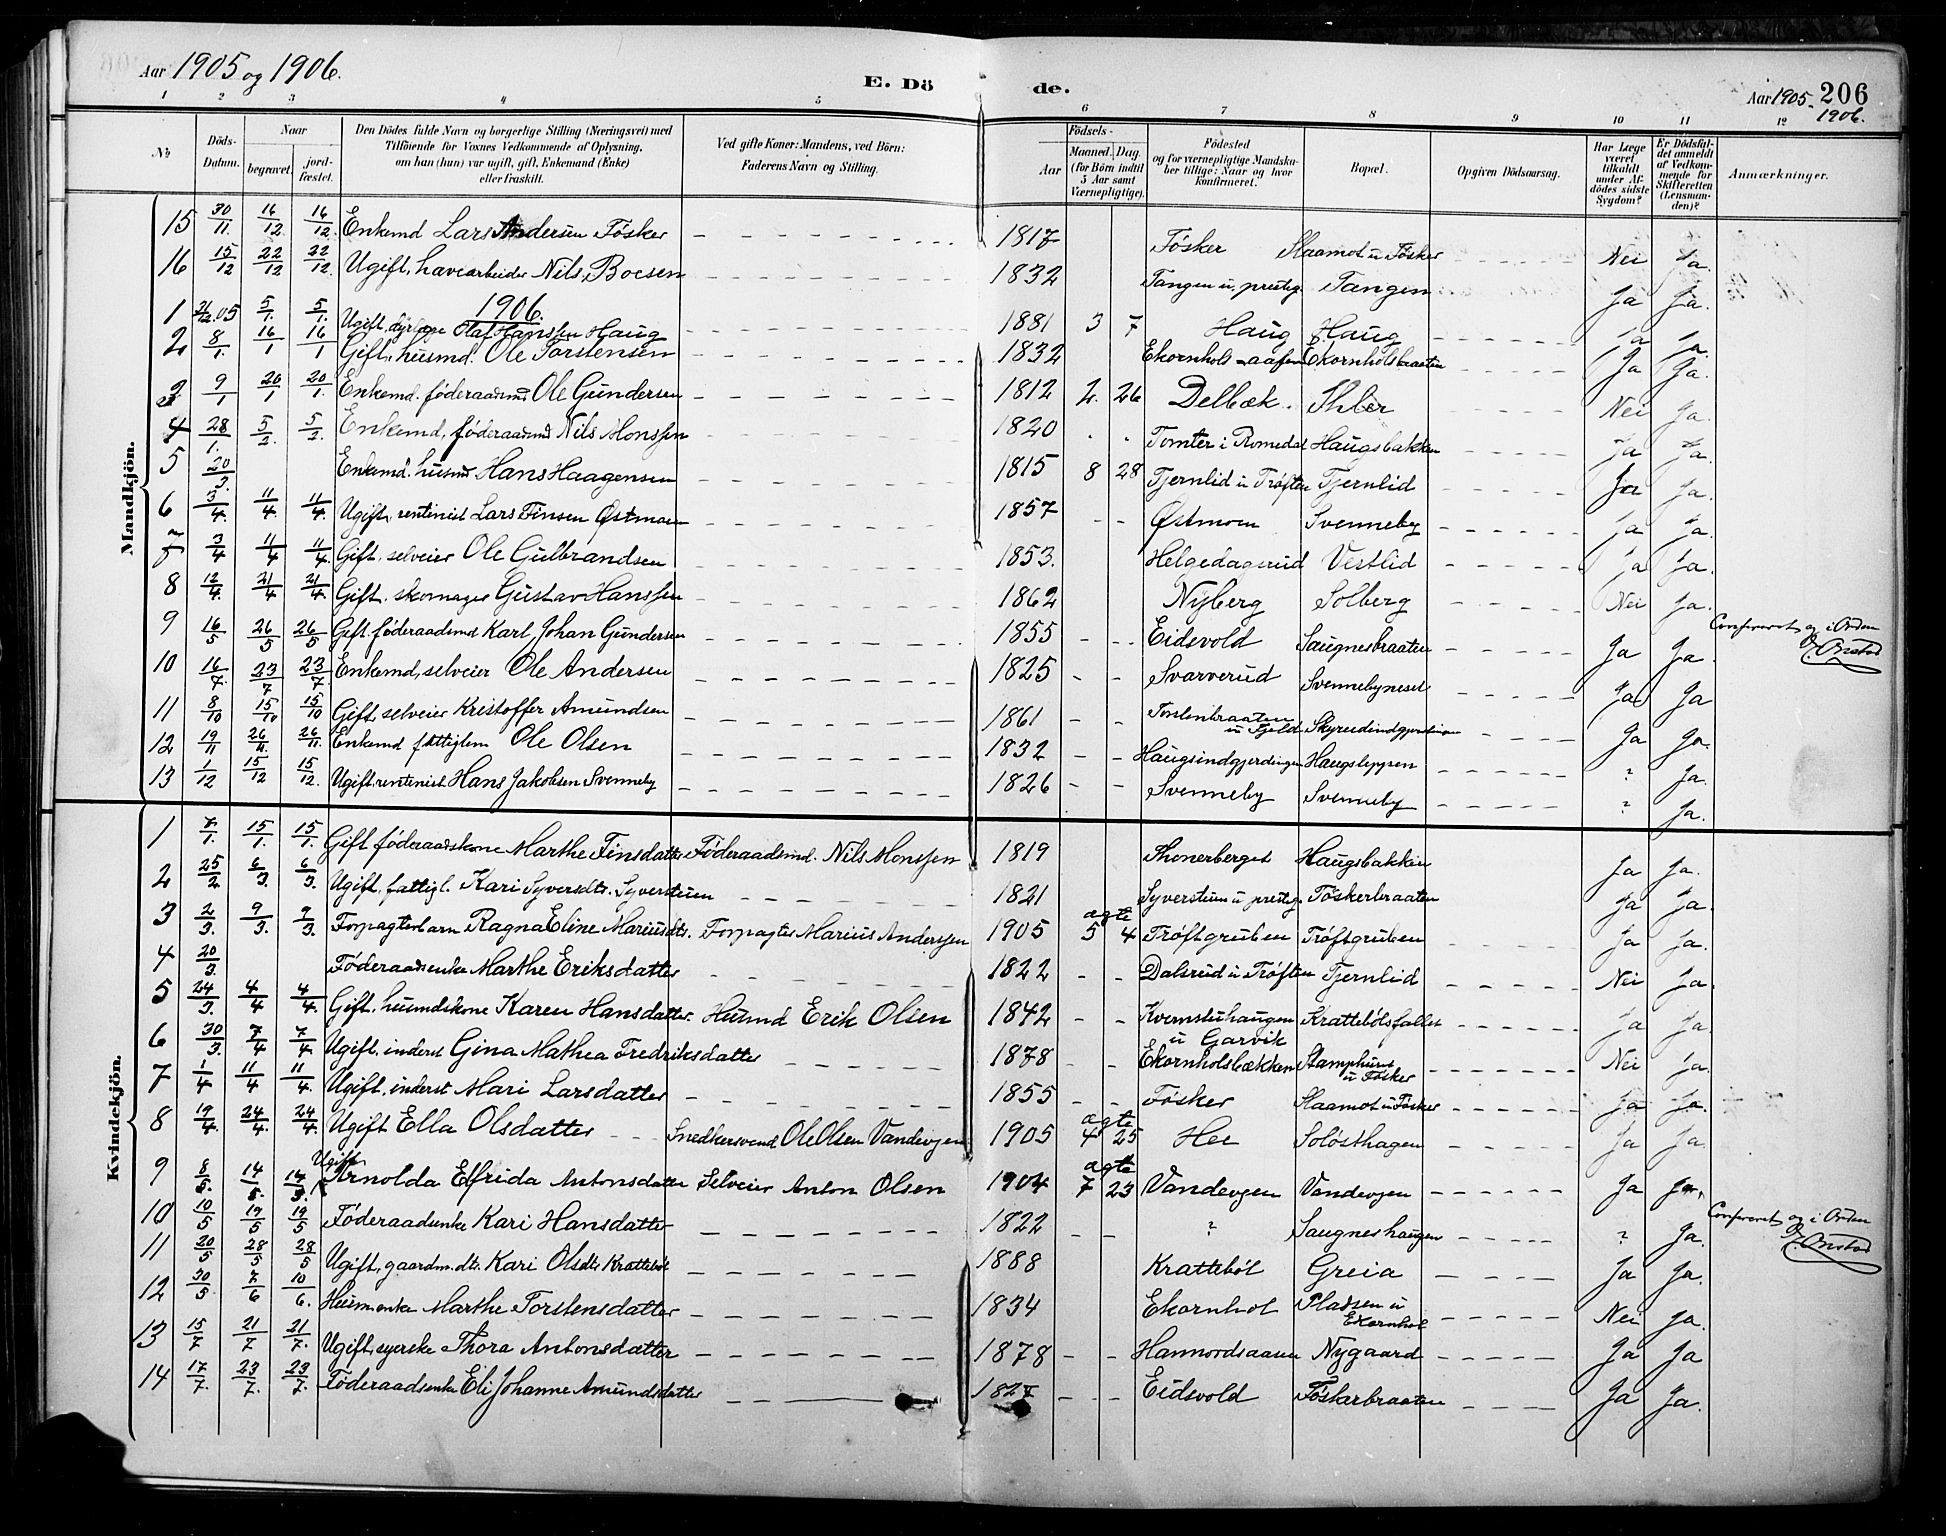 Aar 1905 og 1906.
E. Dö de.
Aar 1905. 206
1906.
1 2 3 4 5 6 7 8 9 10 11 12
No
Döds-Datum.
Naar
begravet. jord-fæstet.
Den Dödes fulde Navn og borgerlige Stilling (Næringsvei) med Tilföiende for Voxnes Vedkommende af Oplysning, om han (hun) var ugift, gift, Enkemand (Enke) eller fraskilt.
Ved gifte Koner: Mandens, ved Börn: Faderens Navn og Stilling.
Födsels-
Aar
Maaned. Dag. (for Börn indtil 5 Aar samt Værnepligtige).
Födested og for værnepligtige Mandska-ber tillige: Naar og hvor konfirmeret.
Bopæl.
Opgiven Dödsaarsag.
Har Læge været tilkaldt under Af-dödes sidste Sygdom?
Er Dödsfal-det anmeldt af Vedkom-mende for Skifteretten (Lensman-den)?
Anmærkninger.
Mandkjön.
15 30/11 16/12 16/12 Enkemd Lars Andersen Føsker 1817 Føsker Slaamot u Føsker Nei Ja.
16 15/12 22/12 22/12 Ugift, havearbeider Nils Boesen 1832 Tangen u. prestg. Tangen Ja Ja.
1906.
1 5/1 5/1 Ugift, dyrlæge Olaf Hanssen Haug 1881 3 7 Haug Haug Ja Ja.
2 8/1 16/1 16/1 Gift, husmd. Ole Torstensen 1832 Ekornhols-aasen Ekornholsbraaten Ja Ja.
3 9/1 20/1 20/1 Enkemd. føderaadsmd Ole Gundersen 1812 2. 26 Delbæk. Ihler Nei Ja.
4 28/1. 5/2. 5/2. Enkemd, føderaadsmd Nils Monssen 1820 Tomter i Romedal Haugsbakken Ja Ja.
5 20/3. Enkemd. husmd Hans Haagensen 1815 8 28 Tjernlid u Trøften Tjernlid Ja Ja.
6 3/4. 11/4. 11/4. Ugift, rentenist Lars Finsen Østmoen 1857 Østmoen Svenneby Ja Ja.
7 3/4 11/4 11/4. Gift, selveier Ole Gulbrandsen 1853. Helgedagsrud Vestlid Ja Ja.
8 12/4. 21/4 21/4 Gift. skomager Gustav Hanssen 1862 Nyberg Solberg Nei Ja.
9 16/5 26/5 26/5 Gift. føderaadsmd Karl Johan Gundersen 1855 Eidsvold Saugnesbraaten Ja Ja.
Confereret og i Orden
10 16/7. 23/7 23/7. Enkemd, selveier Ole Andersen 1825 Svarverud Svennebyneset Ja Ja
11 8/10 15/10 15/10 Gift, selveier Kristoffer Amundsen 1861 u Fjeld Ja Ja.
12 19/11 26/11. Enkemd fattiglem Ole Olsen 1832 Haugsindgjerdingen Haugslyppen ? Ja.
13 1/12 15/12 15/12. Ugift, rentenist Hans Jakobsen Svenneby 1826 Svenneby Svenneby ? Ja.
Kvindekjön.
1 7/1. 15/1. 15/1. Gift føderaadskone Marthe Finsdatter Føderaadsmd. Nils Monssen 1819 Thonerberget Haugsbakken Ja Ja.
2 25/2. 6/3. 6/3. Ugift, fattigl. Kari Syversdtr. Syverstuen 1821 Syverstuen u prestg. Føskerbraaten Ja Ja.
3 2/3. 9/3. 9/3. Forpagterbarn Ragna Eline Mariusdtr. Forpagter Marius Anderssen 1905 ægte 5 4 Trøftgruben Trøftgruben Ja Ja.
4 20/3. Føderaadsenke Marthe Eriksdatter 1822 Dalsrud u Trøften Tjernlid Nei Ja.
5 24/3. 4/4 4/4. Gift, husmdskone Karen Hansdatter. Husmd Erik Olsen 1842 Kvernstuhaugen u Garvik Krattebølsfallet Ja Ja.
6 30/3. 7/4 7/4. Ugift, inderst Gina Mathea Fredriksdatter 1878 Ekornholsbækken Stamphuset u Føsker Nei Ja.
7 1/4 11/4 11/4. Ugift, inderst Mari Larsdatter 1855 Føsker Slaamot u Føsker Ja Ja.
8 19/4. 24/4. 24/4. Ugift Ella Olsdatter Snedkersvend Ole Olsen Vandevjen 1905 ægte 4 25 Hee Soløsthagen Ja Ja.
9 8/5. 14/5. 14/5. Ugift Arnolda Elfrida Antonsdatter Selveier Anton Olsen 1904 ægte 7 23 Vandevjen Vandevjen Ja Ja.
10 10/5 19/5 19/5 Føderaadsenke Kari Hansdatter 1822 ? Saugneshaugen ? Ja.
Confereret og i Orden
11 20/5 28/5 28/5 Ugift, gaardm.dtr. Kari Olsdtr Krattebøl 1888 Krattebøl Greia Ja Ja.
12 30/5 7/6 10/6. Husm.enke Marthe Torstensdatter 1834 Ekornhol Pladsen u Ekornhol Nei Ja.
13 15/7 21/7 21/7. Ugift, syerske Thora Antonsdatter 1878 Hannordsaasen Nygaard Ja Ja
14 17/7. 23/7. 23/7. Føderaadsenke Eli Johanne Amundsdatter Eidsvold Føskerbraaten Ja Ja.